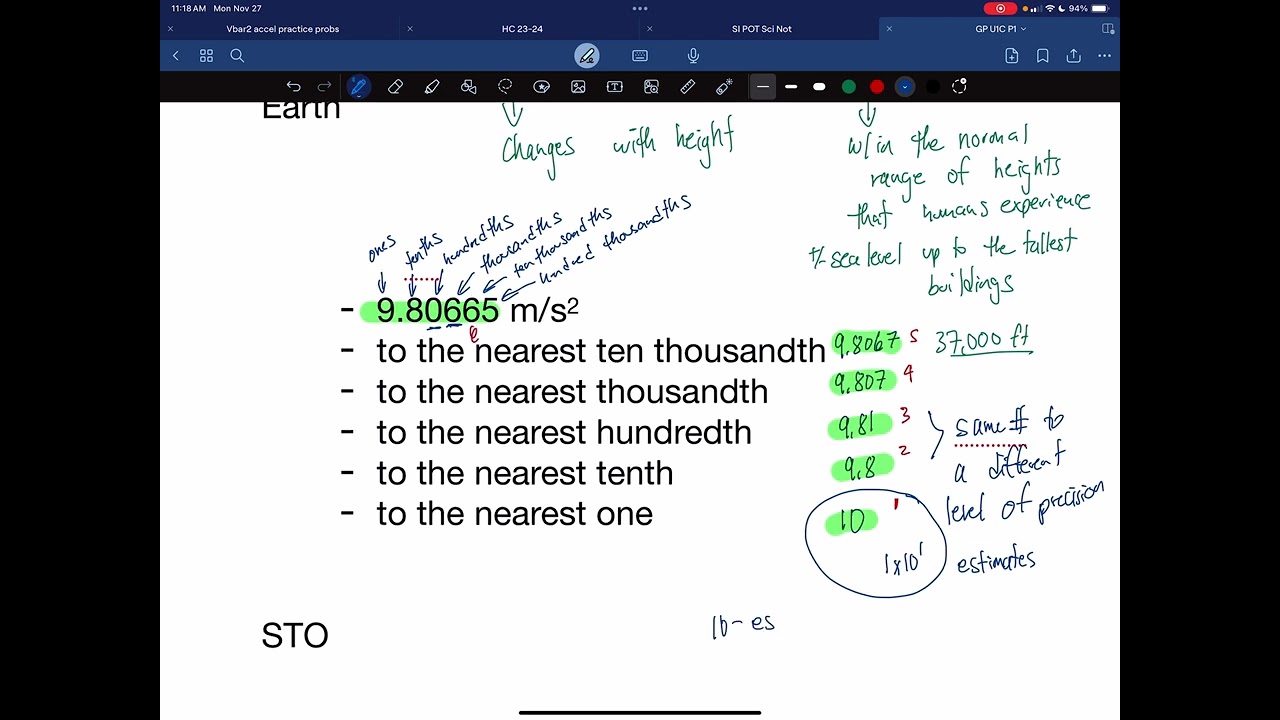 11:18 AM Mon Nov 27
94%
Vbar2 accel practice probs
HC 23-24
SI POT Sci Not
GP U1C P1
Earth
Changes with height
w/in the normal
range of heights
that humans experience
+/- sea level up to the tallest
buildings
ones
tenths
hundredths
thousandths
ten thousandths
hundred thousandths
- 9.80665 m/s²
- to the nearest ten thousandth 9.8067 5 37,000 ft
- to the nearest thousandth 9.807 4
- to the nearest hundredth 9.81 3
- to the nearest tenth 9.8 2
same # to
a different
level of precision
- to the nearest one 10 1
1x10¹ estimates
10 - es
STO